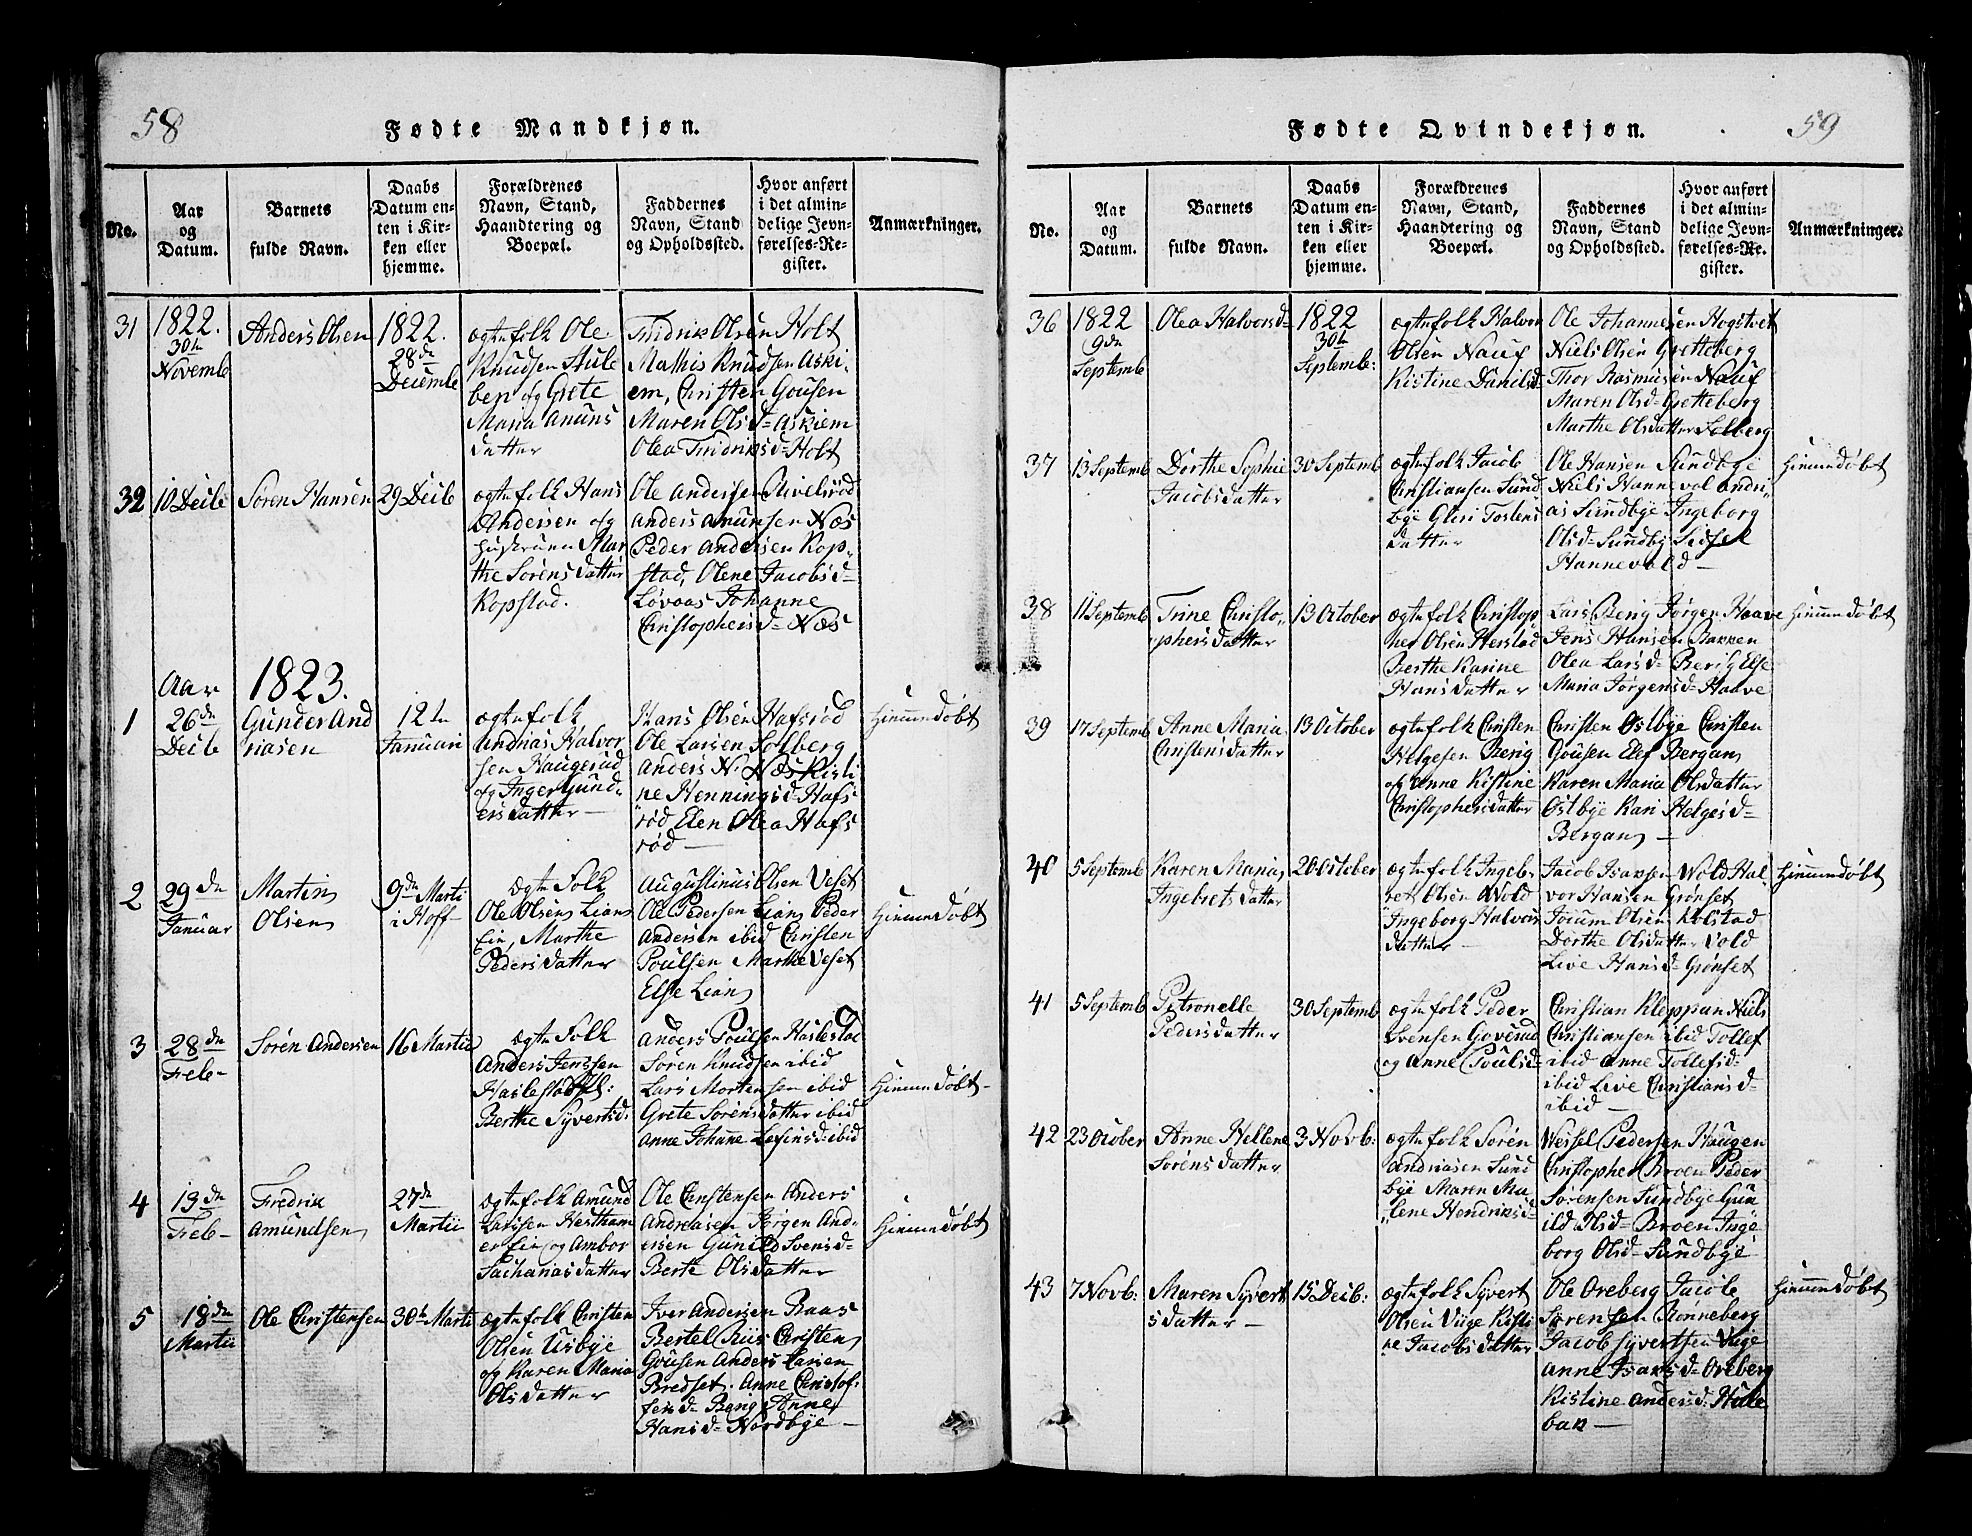 58
Fødte Mandkjøn.
No.
Aar
og
Datum.
Barnets
fulde Navn.
Daabs
Datum en-
ten i Kir-
ken eller
hjemme.
Forældrenes
Navn, Stand,
Haandtering og
Boepæl.
Faddernes
Navn, Stand
og Opholdssted.
Hvor anført
i det almin-
delige Jevn-
førelses-Re-
gister.
Anmærkninger.
31
1822.
30te
Novemb
Anders Olsen
1822.
28de
Decemb
ægtefolk Ole
Knudsen Hule
bek og Grete
Maria Amuns
datter
Fridrik Olsen Holt
Mathis Knudsen Aski-
em, Christen Gousen
Maren Olsd= Askiem
Olea Fridriksd= Holt
32
10 Decb
Søren Hansen
29 Decb
ægtefolk Hans
Andersen og
huskrune Mar
the Sørensdatter
Kopstad.
Ole Andersen
Anders Amunsen Næs
Peder Andersen Kop-
stad, Olene Jacobsd=
Løvaas Johanne
Christophersd= Næs
Aar 1823.
1
26de
Decb
Gunder And
riasen
12te
Januari
ægtefolk
Andrias Halvor
sen Haugerud
og Inger Gund-
ersdatter
Hans Olsen Hafsrød
Ole Larsen Solberg
Anders N. Næs Kisti
ne Henningsd= Hafs
rød Elen Olea Hafs
rød
hiemmedøbt
2
29de
Januar
Martin
Olsen
9de Marti
i Hoff
ægte Folk
Ole Olsen Lian
Eier, Marthe
Pedersdatter
Augustinus Olsen Veset
Ole Pedersen Lian Peder
Andersen ibid Christen
Poulsen Marthe Veset
Else Lian
hiemmedøbt
3
28de
Feb
Søren Andersen
16 Martii
ægte Folk
Anders Jenssen
Haslestad
Berthe Syversd:
Anders Poulsen Haslestad
Søren Knudsen ibid
Lars Mortensen ibid
Grete Sørensdatter ibid
Anne Johanne ibid
hiemmedøbt
4
13de
Feb
Fredrik
Amundsen
27de
Martii
ægtefolk Amund
Larssen Hestham
er Eier og Ambor
Sachariasdatter
Ole Christensen Anders
Andreasen Jørgen And-
ersen Gunild Svensd=
Berte Olsdatter
hiemmedøbt
5
18de
Martii
Ole Christensen
30te Marti
ægtefolk Christen
Olsen Usbye
og Karen Maria
Olsdatter
Iver Andersen Raas
Bertel Riis Christen
Gousen Anders Larsen
Bredset. Anne Christof-
fersd= Berig Anne
Hansd= Nordbye
59
Fødte Qvindekjøn.
No.
Aar
og
Datum.
Barnets
fulde Navn.
Daabs
Datum en-
ten i Kir-
ken eller
hjemme.
Forældrenes
Navn, Stand,
Haandtering og
Boepæl.
Faddernes
Navn, Stand
og Opholdssted.
Hvor anført
i det almin-
delige Jevn-
førelses-Re-
gister.
Anmærkninger.
36
1822
9de
Septemb
Olea Halvorsd=
1822
30te
Septemb:
ægtefolk Halvor
Olsen Nauf
Kistine Danilsd=
Ole Johannesen Hogstvet
Niels Olsen Gretteberg
Thor Rasmusen Nauf
Maren Olsd= Gretteberg
Marthe Olsdatter Solberg
37
13 Septemb
Dorthe Sophie
Jacobsdatter
30 Septemb
ægtefolk Jacob
Christiansen Sund
bye Gluri Tostens
datter
Ole Hansen Sundbye
Niels Hannevol Andri-
as Sundbye Ingeborg
Olsd= Sundby Sidsel
Hannevold
hiemmedøbt
38
11 Septemb
Trine Christo-
phersdatter
13 October
ægtefolk Christop
her Olsen Herstad
Berthe Karine
Hansdatter
Lars Berig Jørgen Haave
Jens Hansen Bakken
Olea Larsd= Berig Else
Maria Jørgensd= Haave
hiemmedøbt
39
17 Septemb
Anne Maria
Christensdatter
13 October
ægtefolk Christen
Helgesen Berig
og Anne Kistine
Christophersdatter
Christen Østbye Christen
Gousen Elef Bergan
Karen Maria Olsdatter
Østbye Kari Helgesd=
Bergan
40
5 Septemb
Karen Maria
Ingebretsdatter
20 October
ægtefolk Ingeb-
ret Olsen Wold
Ingeborg Halvors
datter
Jacob Isaksen Wold Hal-
vor Hansen Grønset
Jocum Olsen Kolstad
Dorthe Olsdatter Vold
Live Hansd= Grønset
hiemmedøbt
41
5 Septemb
Petronelle
Pedersdatter
30 Septemb
ægtefolk Peder
Svensen Goverud
og Anne Poulsd=
Christian Kleppan Niels
Christiansen ibid Tollef
ibid Anne Tollefsd=
ibid Live Christiansd=
ibid
42
23 October
Anne Hellene
Sørensdatter
3 Novb:
ægtefolk Søren
Andriasen Sund
bye Maren Ma-
lene Hendriksd=
Wessel Pedersen Haugen
Christopher Broen Peder
Sørensen Sundbye Gun
ild Olsd= Broen Inge
borg Olsd= Sundbye
43
7 Novb:
Maren Syvert
sdatter
15 Decb:
ægtefolk Syvert
Olsen Viige Kisti
ne Jacobsdatter
Ole Oreberg Jacob
Sørensen Rønneberg
Jacob Syvertsen Viige
Anne Isaksd= Oreberg
Kistine Andersd: Hule
bak
hiemmedøbt